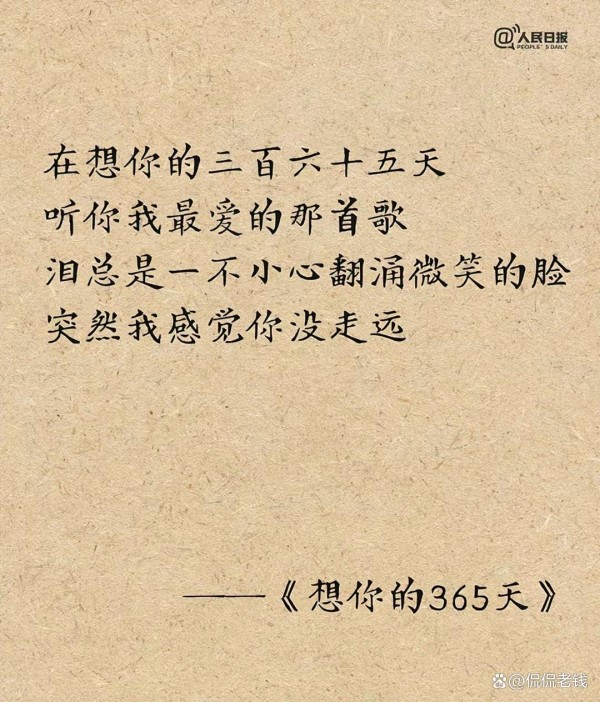 @人民日报
PEOPLE'S DAILY
在想你的三百六十五天
听你我最爱的那首歌
泪总是一不小心翻涌微笑的脸
突然我感觉你没走远
——《想你的365天》
@侃侃老钱